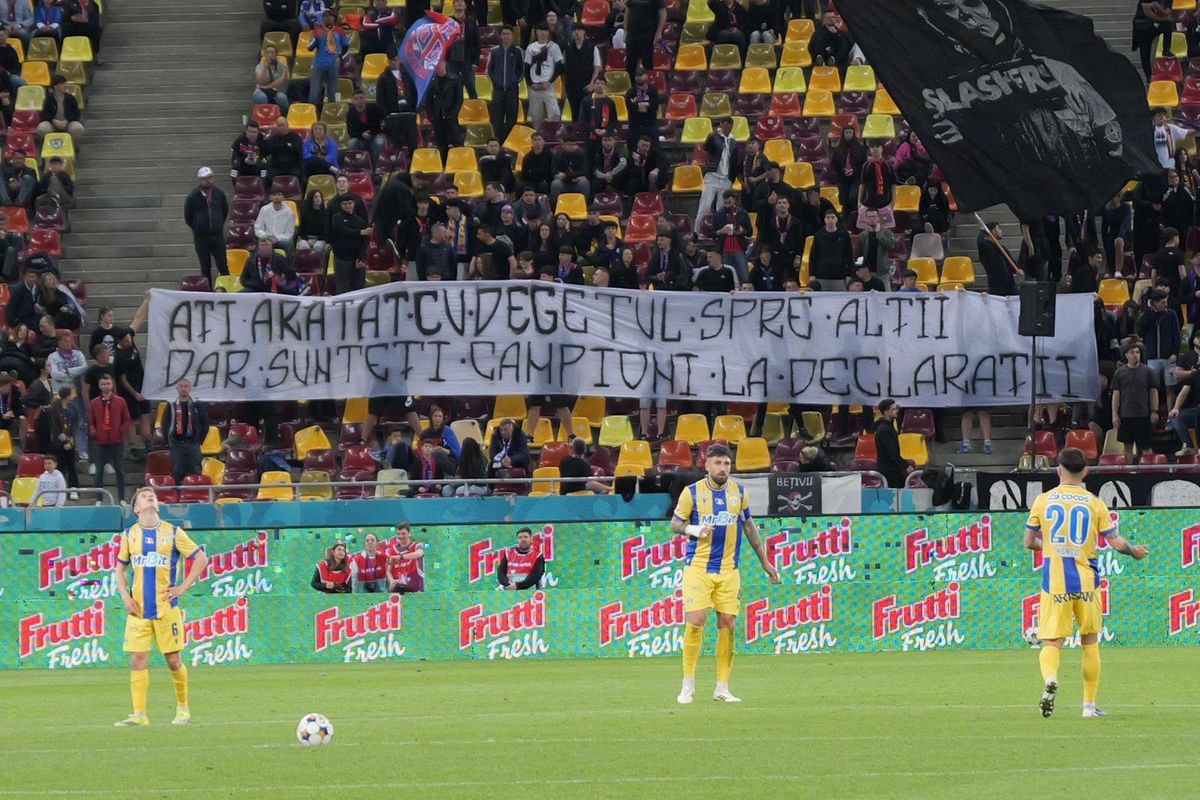 SLASHER
AȚI·ARĂTAT·CU·DEGETUL·SPRE·ALȚII
DAR·SUNTEȚI·CAMPIONI·LA·DECLARAȚII
BEȚIVII
Frutti Fresh
Frutti Fresh
Frutti Fresh
Frutti Fresh
Frutti Fresh
Frutti Fresh
Frutti
Frutti Fresh
Frutti Fresh
Frutti Fresh
Frutti Fresh
Frutti Fresh
Frutti Fresh
Frutti Fresh
Frutti
MrBit
6
MrBit
COCOS
20
ARTISAN